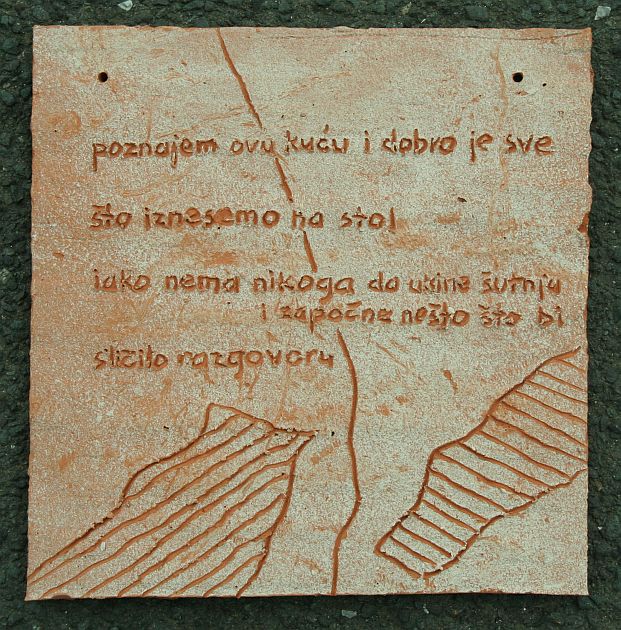 poznajem ovu kuću i dobro je sve
što iznesemo na stol
iako nema nikoga da ukine šutnju
i započne nešto što bi
sličilo razgovoru